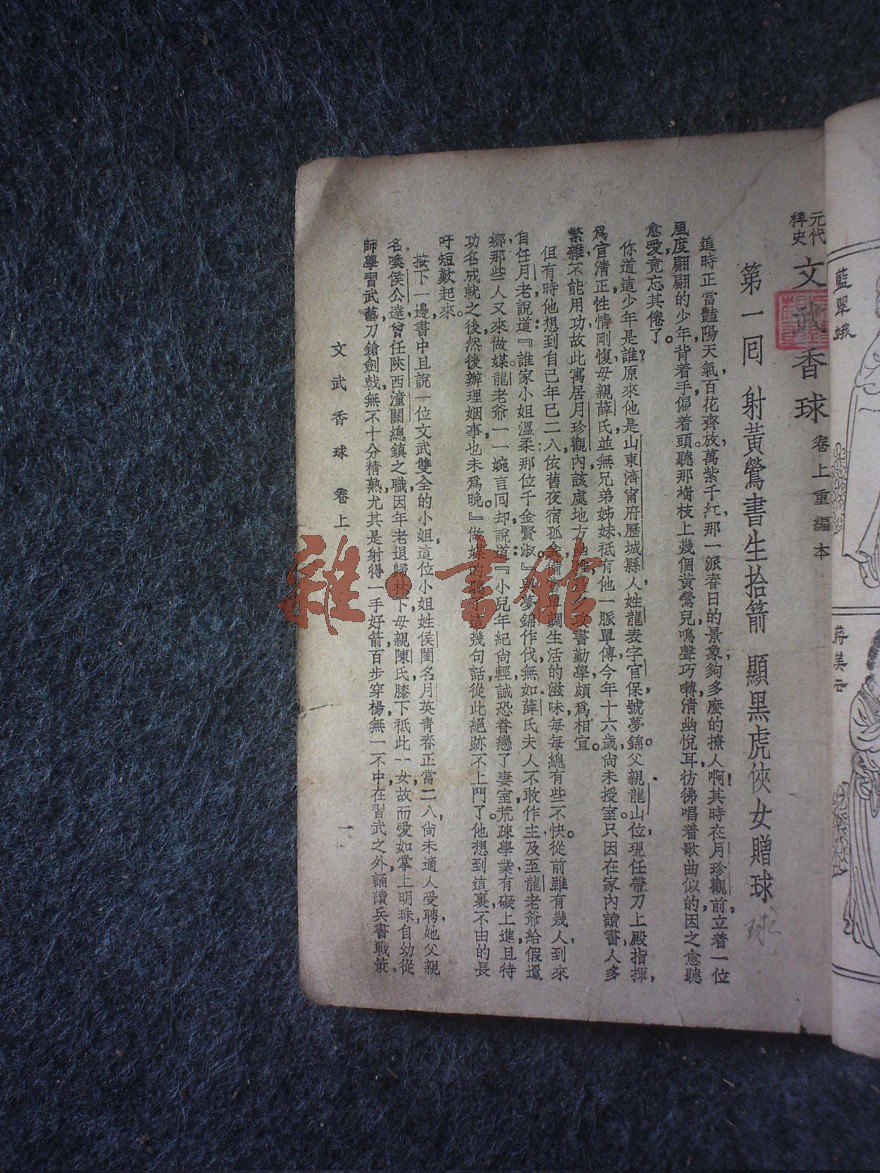 元代
稗史
文武香球
卷上重編本
第一囘 射黃鶯書生拾箭 顯黑虎俠女贈球
球
這時正當豔陽天氣百花齊放萬紫千紅那一派春日的景象夠多麼的撩人啊!其時在月珍觀前立着一位
風度翩翩的少年背着手偏着頭聽那樹枝上幾個黃鶯兒鳴聲巧囀清幽悅耳彷彿唱着歌曲似的因之愈聽
愈愛竟忘其倦了。
你道這少年是誰?原來他是山東濟甯府歷城縣人姓龍表字官保號夢錦。父親龍山位現任帶刀上殿指揮,
爲官清正性情剛愎母親薛氏並無兄弟姊妹祇有他一脈單傳今年十六歲尚未授室只因在家內讀書人多
繁雜不能用功故此寓居月珍觀內該處地方幽 攻書勤學頗爲相宜。
但有時他想到自己年已二八依舊夜宿孤 單調生活的滋味每每總有些不快從前雖有幾人到來
自任月老說道:『誰家小姐溫柔那位千金賢淑。』與夢錦作伐無如薛氏夫人不敢作主及至龍老爺給假還
鄉那些人又來做媒龍老爺一一婉言同却說道:『小兒年紀尚輕誠恐眷戀了妻室荒疎學業有礙上進且待
功名成就之後然後辦理姻事也未爲晚。』做媒的 這幾句話從此絕跡不上門了。他想到這裏不由的長
吁短歎起來。
按下一邊書中且說一位文武雙全的小姐這位小姐姓侯閨名月英青春正當二八尚未適人受聘她父親
名喚侯公達曾任陝西潼關總鎮之職因年老退歸林下母親陳氏膝下祇此一女故而愛如掌上明珠自幼從
師學習武藝刀鎗劍戟無不十分精熟尤其是射得一手好箭百步穿楊無一不中在習武之外誦讀兵書戰策
文武香球 卷上
一
藍翠娥
蔣美云
雜·書館